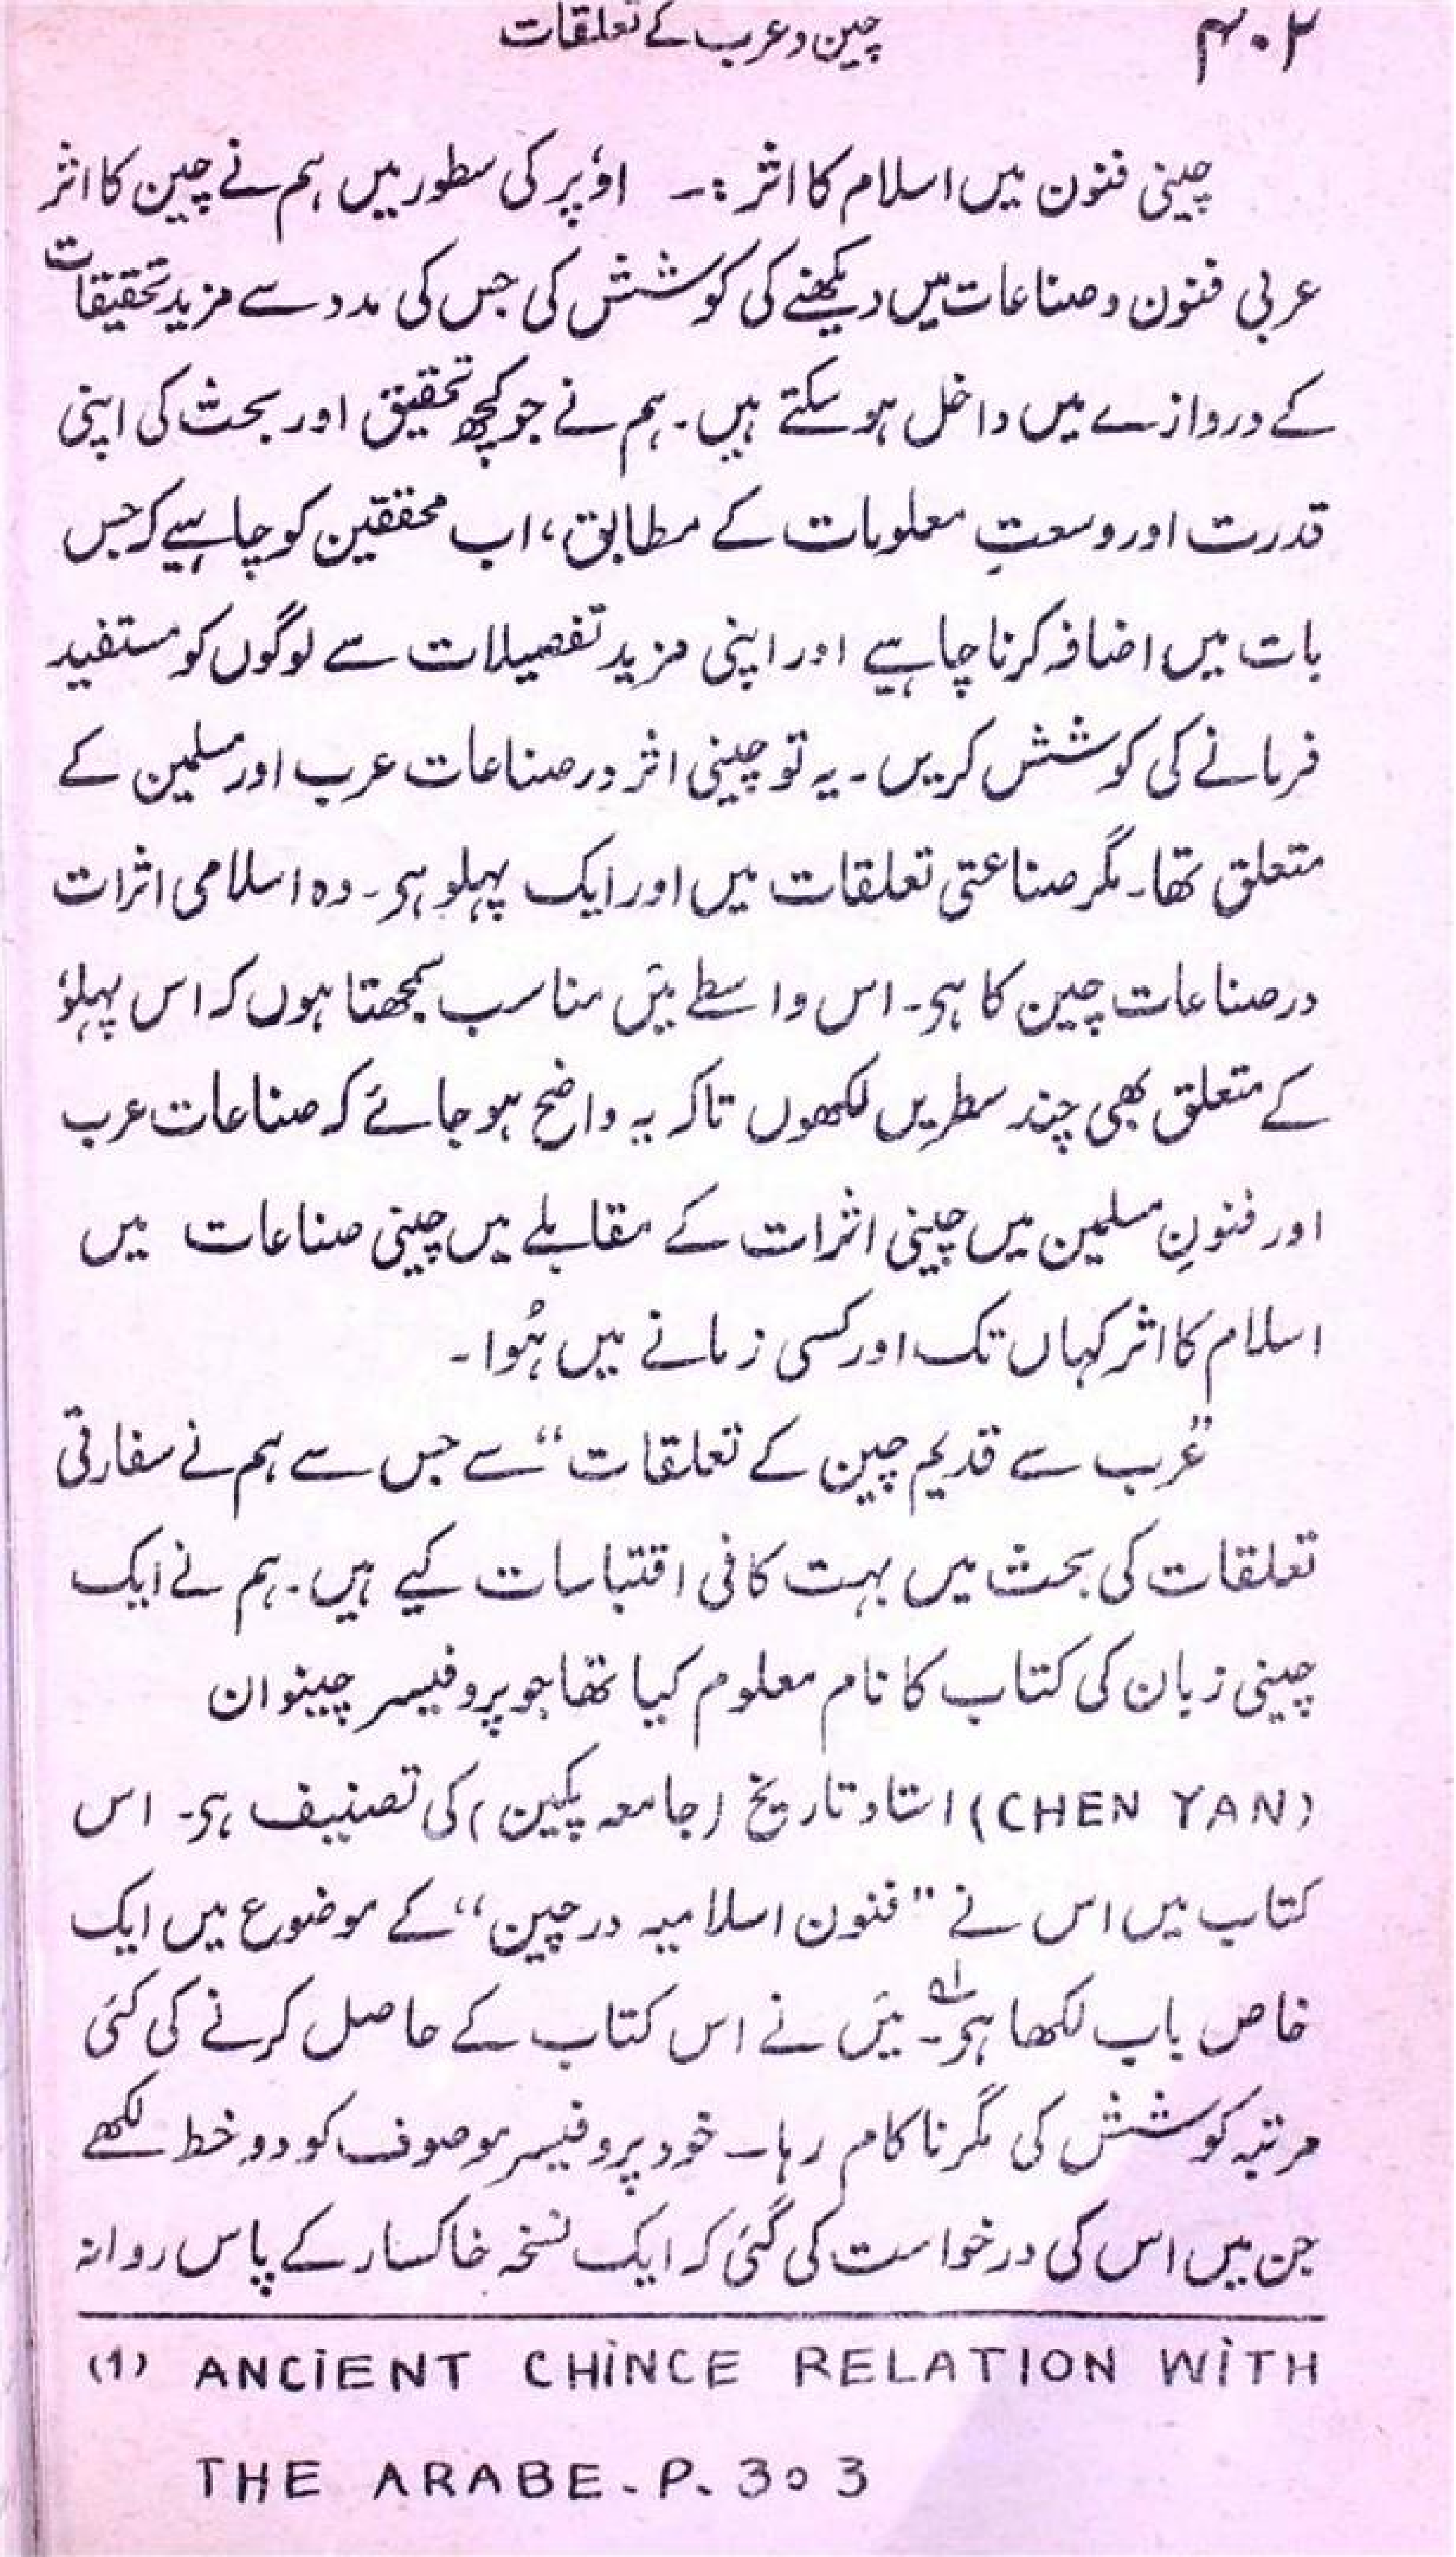 ۴۰۲
چین و عرب کے تعلقات
چینی فنون میں اسلام کا اثر :۔ اوٗپر کی سطور میں ہم نے چین کا اثر
عربی فنون و صناعات میں دیکھنے کی کوشش کی جس کی مدد سے مزید تحقیقات
کے دروازے میں داخل ہو سکتے ہیں۔ ہم نے جو کچھ تحقیق اور بحث کی اپنی
قدرت اور وسعتِ معلومات کے مطابق، اب محققین کو چاہیے کہ جس
بات میں اضافہ کرنا چاہیے اور اپنی مزید تفصیلات سے لوگوں کو مستفید
فرمانے کی کوشش کریں۔ یہ تو چینی اثر در صناعات عرب اور مسلمین کے
متعلق تھا۔ مگر صناعتی تعلقات میں اور ایک پہلو ہی۔ وہ اسلامی اثرات
در صناعات چین کا ہی۔ اس واسطے میَں مناسب سمجھتا ہوں کہ اس پہلوٗ
کے متعلق بھی چند سطریں لکھوں تاکہ یہ واضح ہو جائے کہ صناعات عرب
اور فنونِ مسلمین میں چینی اثرات کے مقابلے میں چینی صناعات میں
اسلام کا اثر کہاں تک اور کسی زمانے میں ہُوا۔
”عرب سے قدیم چین کے تعلقات“ سے جس سے ہم نے سفارتی
تعلقات کی بحث میں بہت کافی اقتباسات کیے ہیں۔ ہم نے ایک
چینی زبان کی کتاب کا نام معلوم کیا تھا جو پروفیسر چینوان
(CHEN YAN) استاد تاریخ (جامعہ پکین) کی تصنیف ہی۔ اس
کتاب میں اس نے ”فنون اسلامیہ در چین“ کے موضوع میں ایک
خاص باب لکھا ہی۔ میَں نے اس کتاب کے حاصل کرنے کی کئی
مرتبہ کوشش کی مگر ناکام رہا۔ خود پروفیسر موصوف کو دو خط لکھے
جن میں اس کی درخواست کی گئی کہ ایک نسخہ خاکسار کے پاس روانہ
(1) ANCIENT CHINCE RELATION WITH
THE ARABE-P-303